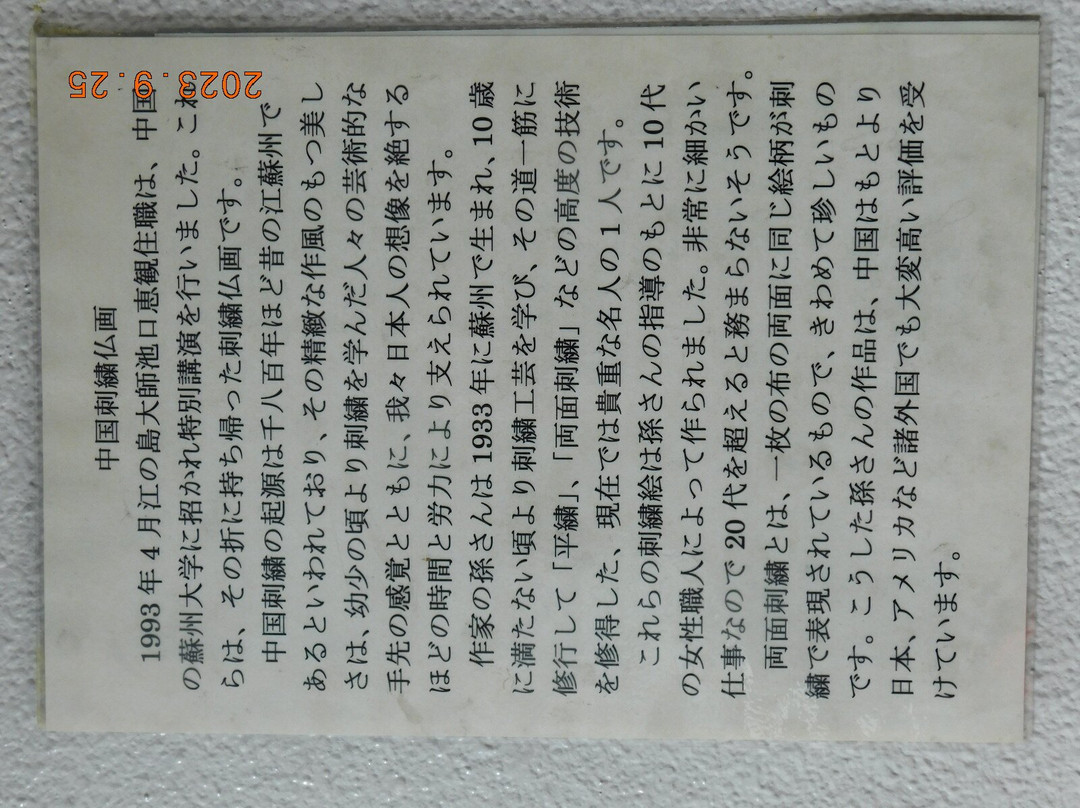 中国刺繍仏画
1993年4月江の島大師池口恵観住職は、中国
の蘇州大学に招かれ特別講演を行いました。これ
らは、その折に持ち帰った刺繍仏画です。
中国刺繍の起源は千八百年ほど昔の江蘇州で
あるといわれており、その精緻な作風のもつ美し
さは、幼少の頃より刺繍を学んだ人々の芸術的な
手先の感覚とともに、我々日本人の想像を絶する
ほどの時間と労力により支えられています。
作家の孫さんは1933年に蘇州で生まれ、10歳
に満たない頃より刺繍工芸を学び、その道一筋に
修行して「平繍」、「両面刺繍」などの高度の技術
を修得した、現在では貴重な名人の1人です。
これらの刺繍絵は孫さんの指導のもとに10代
の女性職人によって作られました。非常に細かい
仕事なので20代を超えると務まらないそうです。
両面刺繍とは、一枚の布の両面に同じ絵柄が刺
繍で表現されているもので、きわめて珍しいもの
です。こうした孫さんの作品は、中国はもとより
日本、アメリカなど諸外国でも大変高い評価を受
けています。
2023.9.25